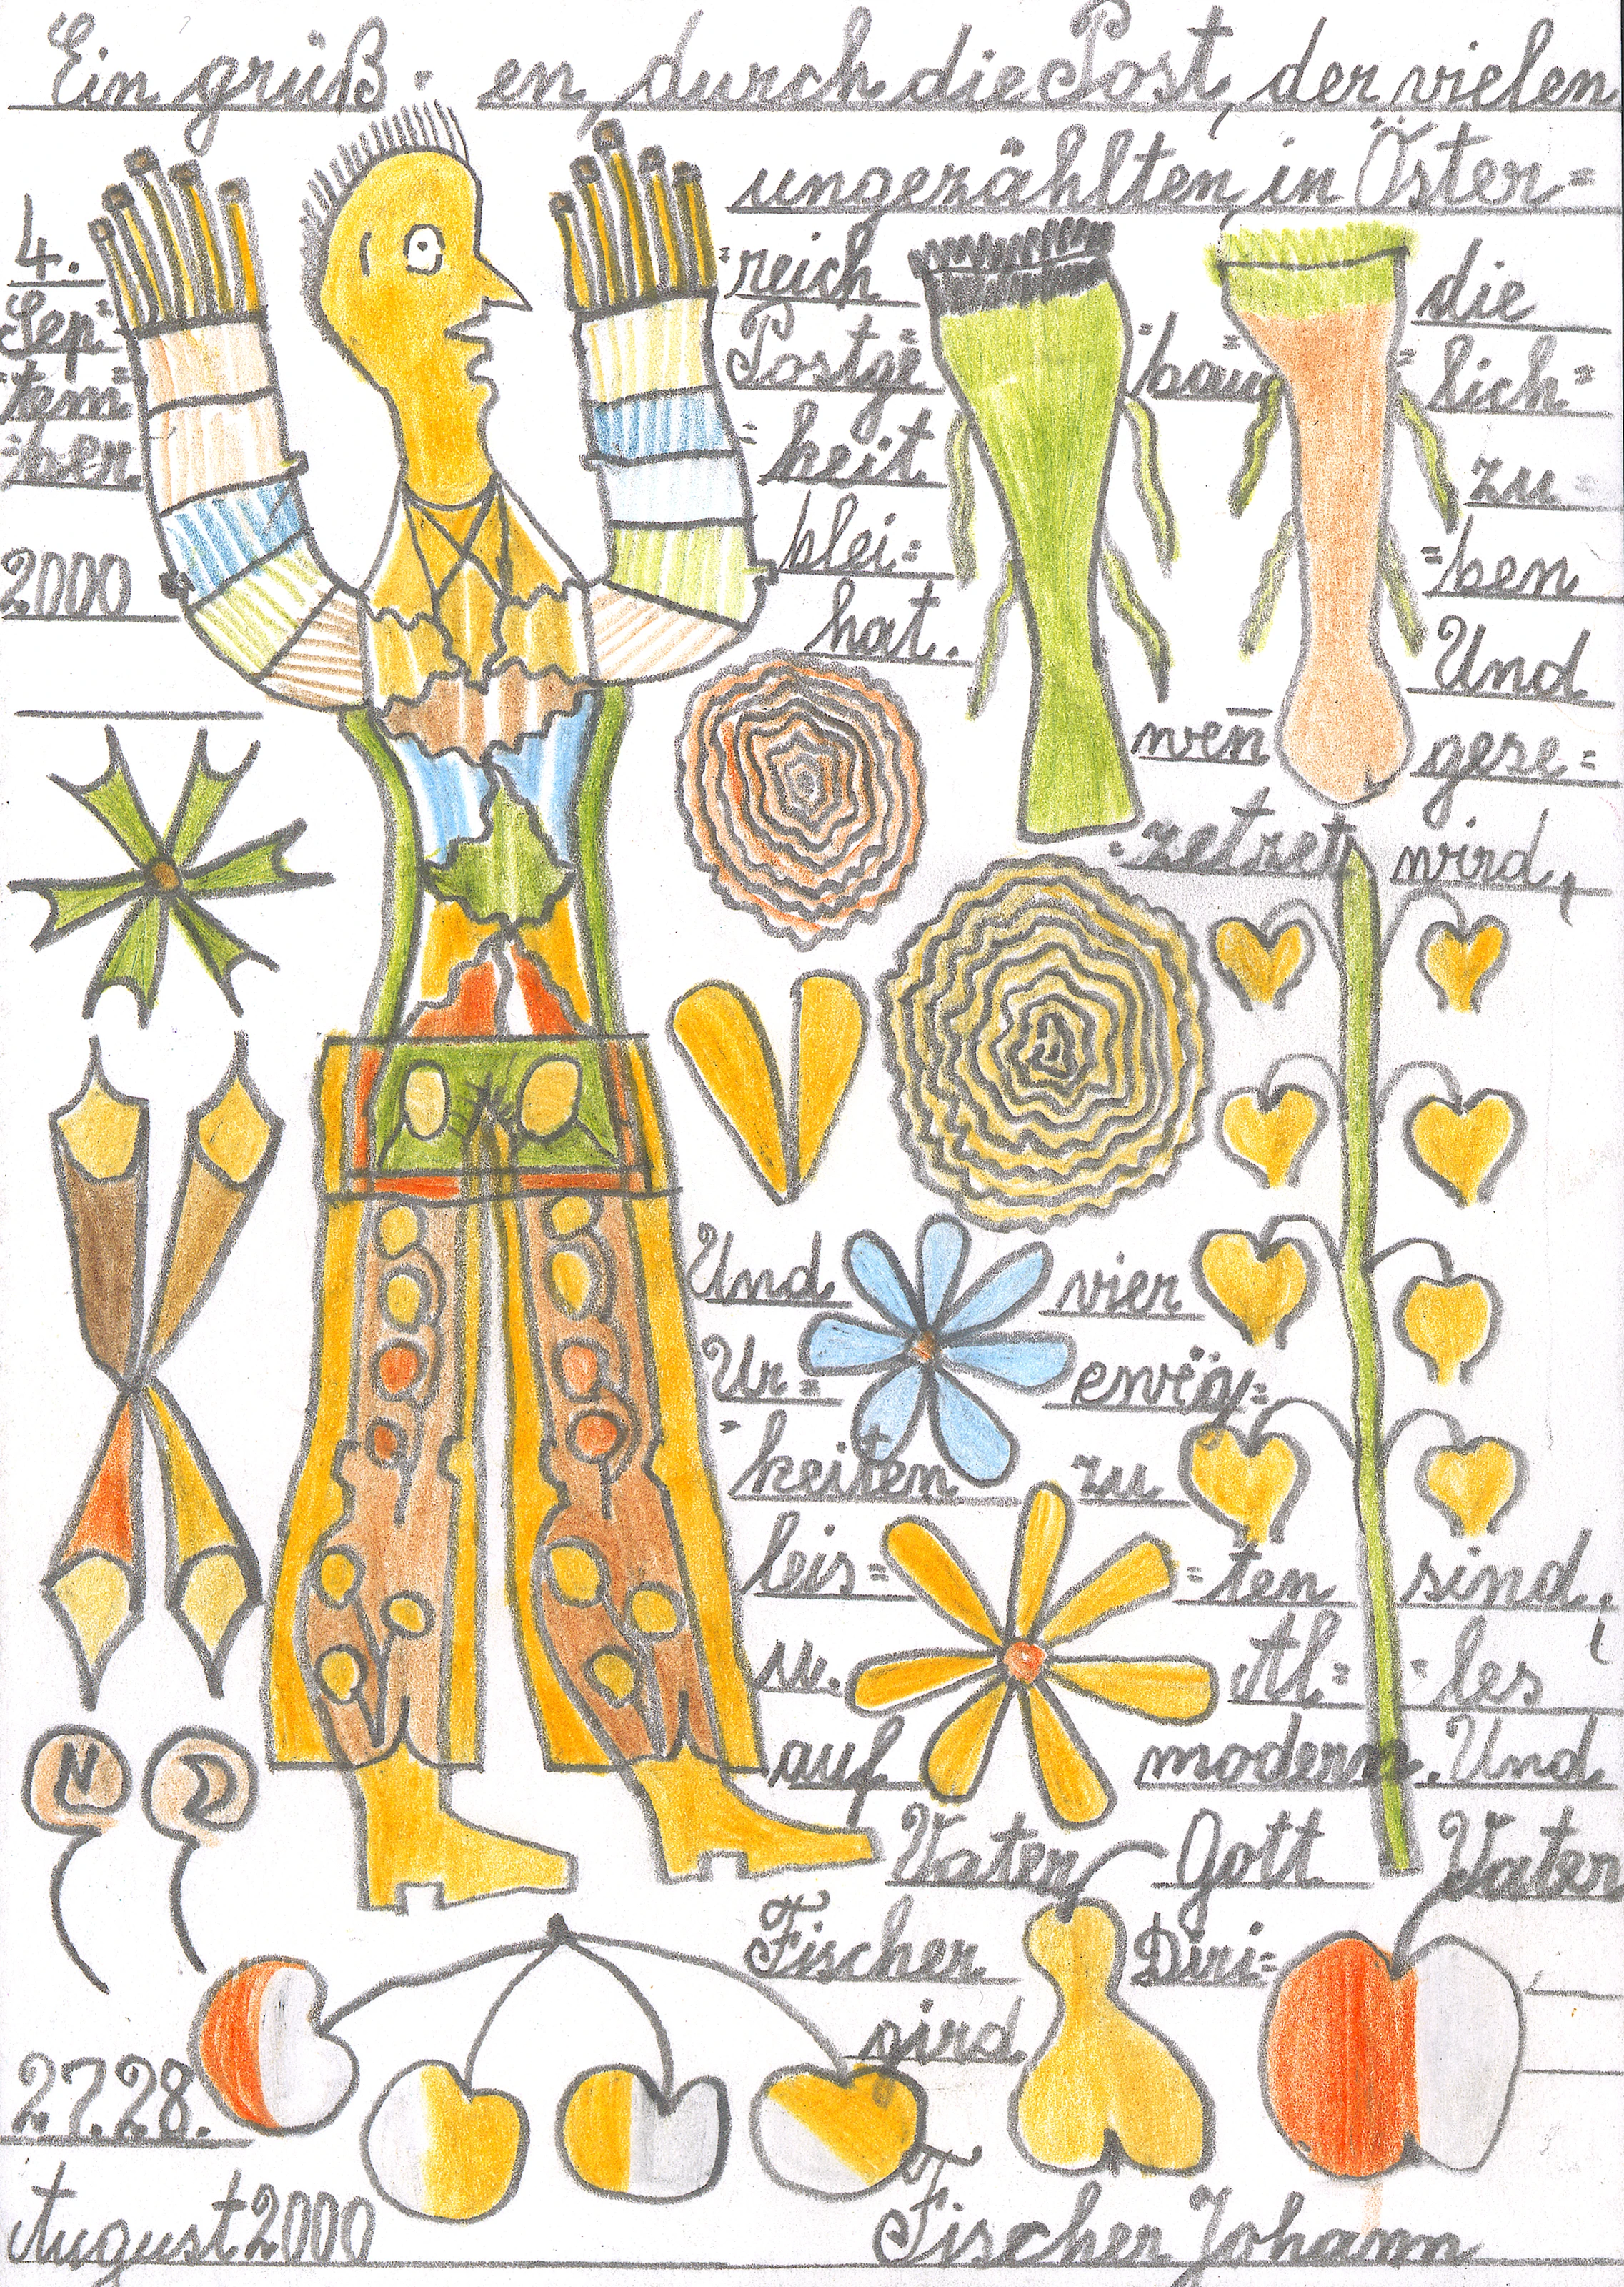 Ein grüß- en, durch die Post, der vielen
ungezählten, in Öster=
4. =reich die
Sep= Postge =bau= =lich=
=tem= =heit zu=
=ber blei= =ben
2000 hat. Und
wen̄ gese=
=zetzet wird,
Und vier
Ur= ewëg=
=keiten zu
leis= =ten sind,
u. Al= =les
auf modern. Und
Vater Gott Vater
Fischer Diri=
gird
N
27.28.
August 2000 Fischer Johann